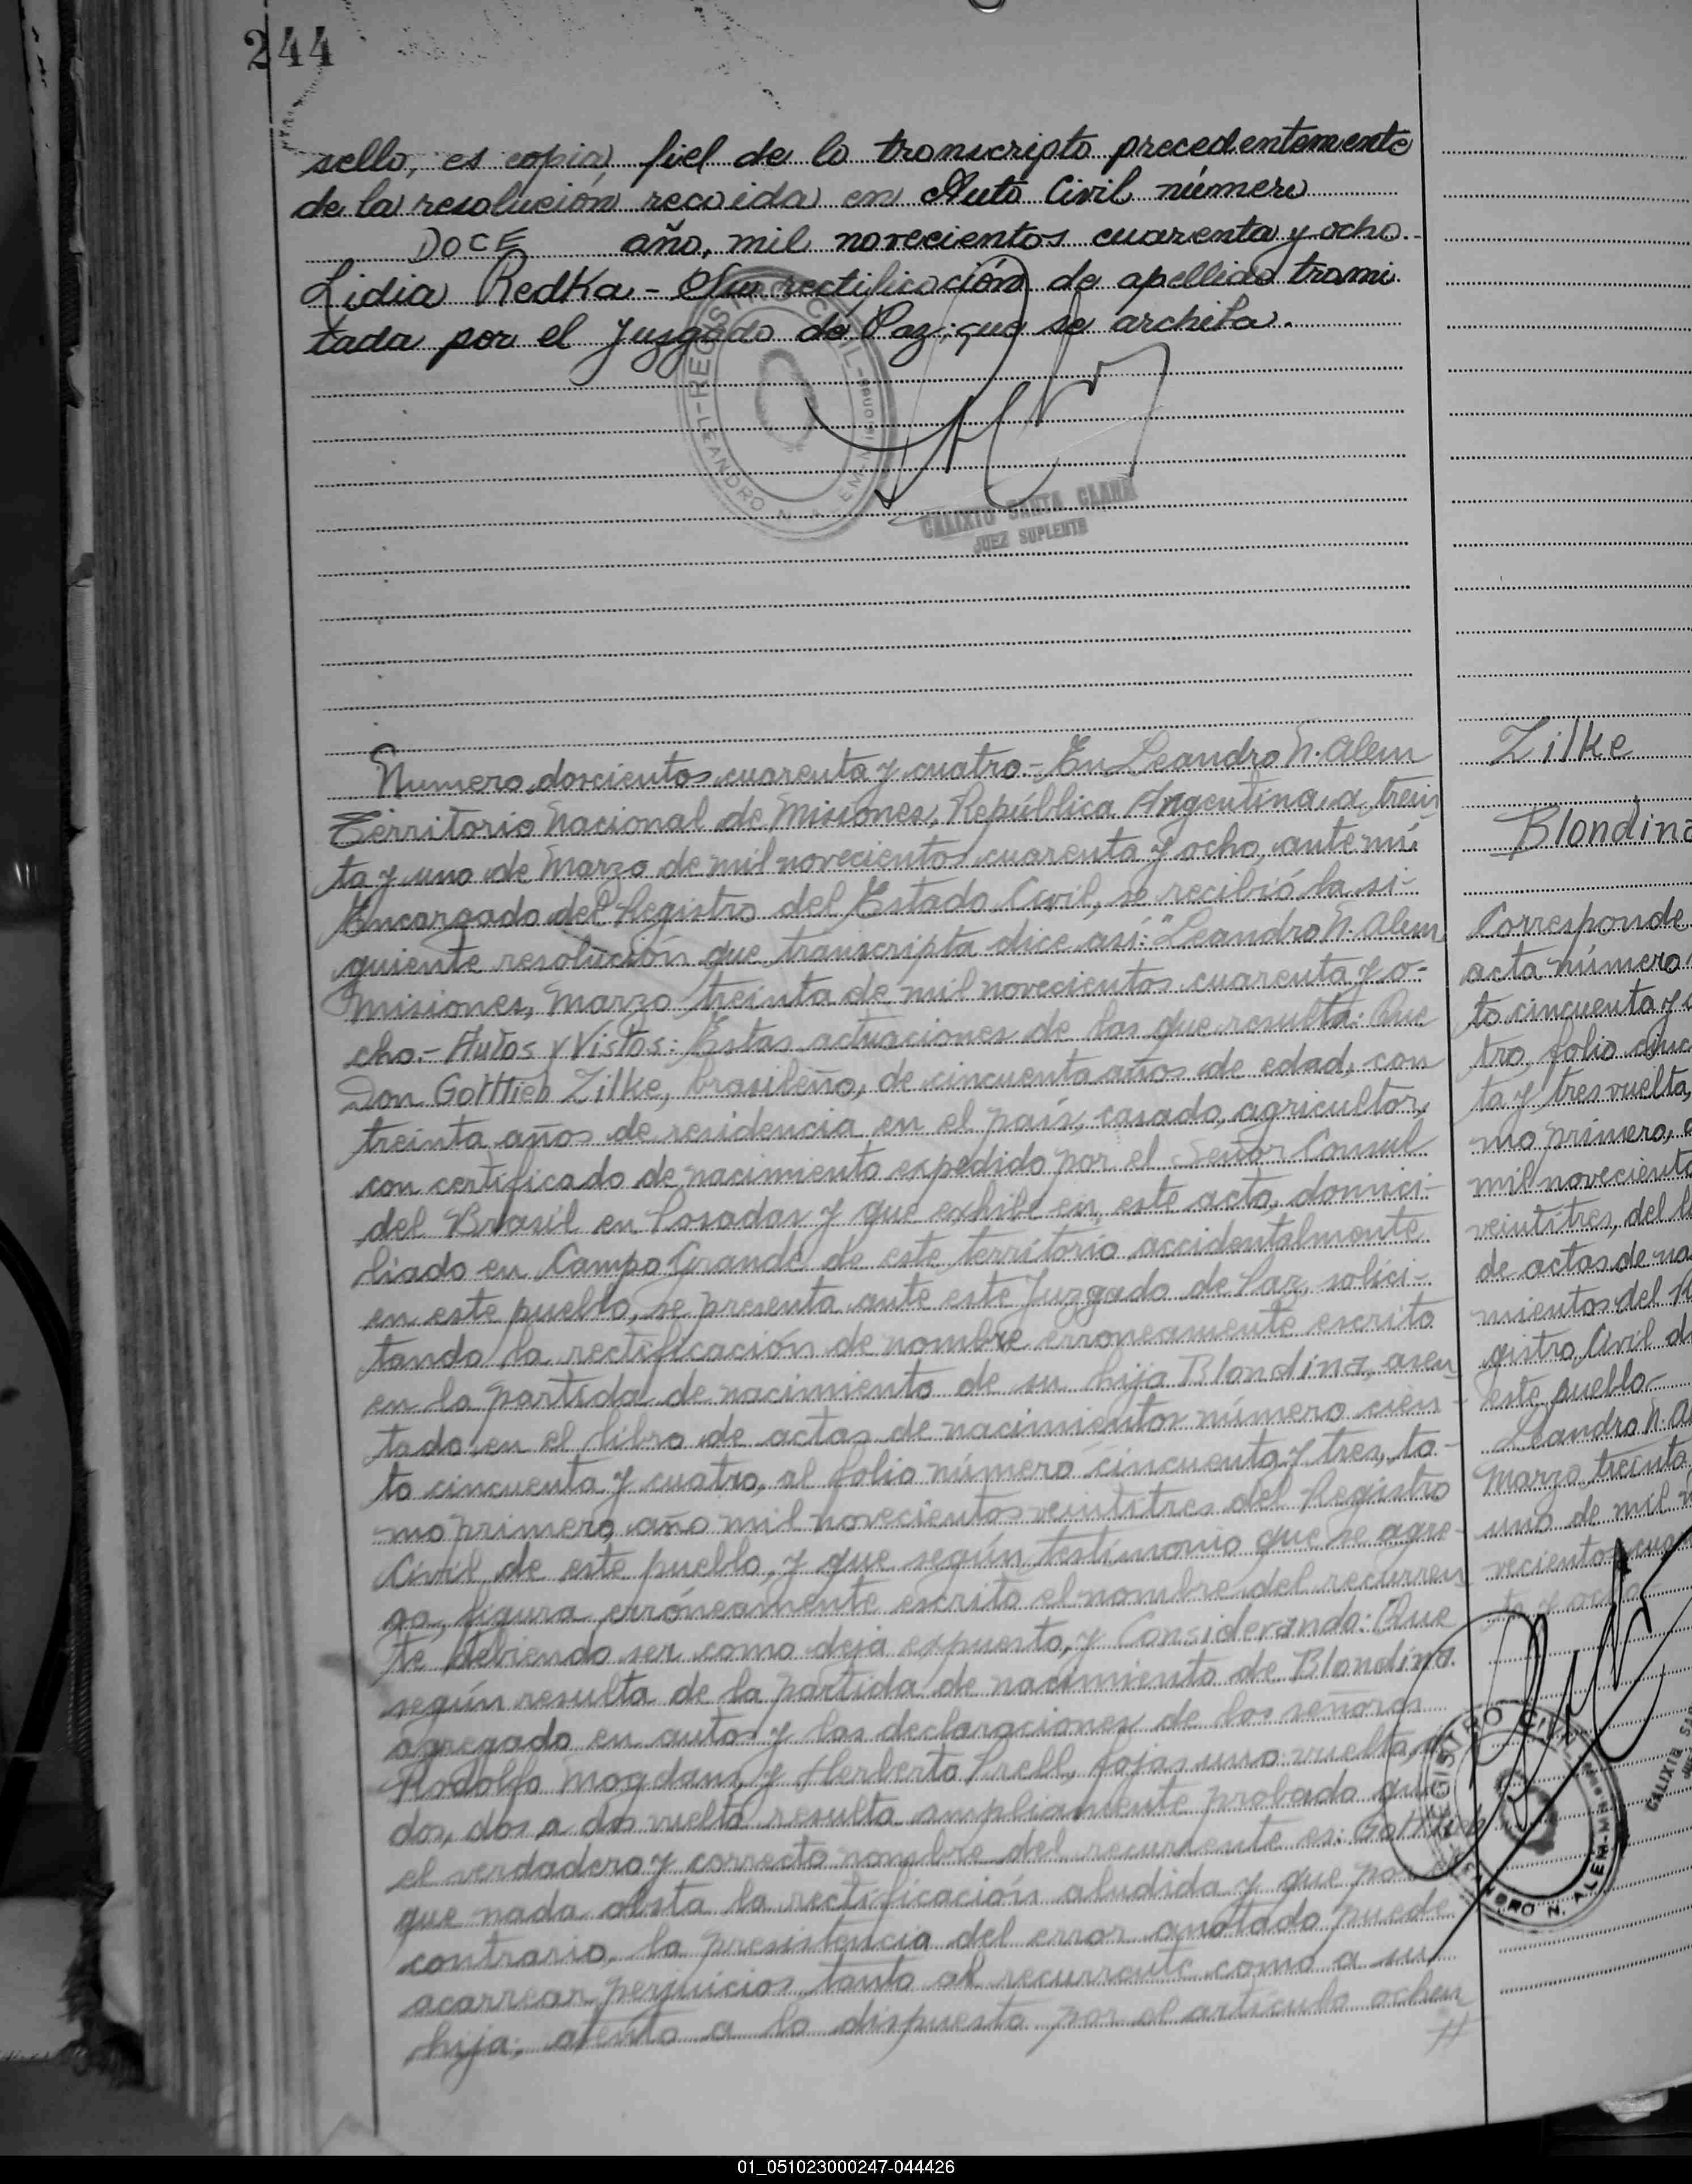 244
sello, es copia fiel de lo transcripto precedentemente
de la resolución recaida en Auto Civil número
DOCE año, mil novecientos cuarenta y ocho.-
Lidia Redka - rectificación de apellido trami
tada por el Juzgado de Paz; que se archiva.
REGISTRO CIVIL - Misiones
LEANDRO N. ALEM
CALIXTO SANTA CLARA
JUEZ SUPLENTE
Numero doscientos cuarenta y cuatro.- En Leandro N. Alem
Territorio Nacional de Misiones, República Argentina, a trein
ta y uno de Marzo de mil novecientos cuarenta y ocho, ante mí
Encargado del Registro del Estado Civil, se recibió la si-
guiente resolución que transcripta dice así: "Leandro N. Alem
Misiones, Marzo treinta de mil novecientos cuarenta y o-
cho.- Autos y Vistos: Estas actuaciones de las que resulta: Que
Don Gottlieb Zilke, brasileño, de cincuenta años de edad, con
treinta años de residencia en el país, casado, agricultor,
con certificado de nacimiento expedido por el Señor Consul
del Brasil en Posadas y que exhibe en este acto, domici-
liado en Campo Grande de este territorio accidentalmente
en este pueblo, se presenta ante este Juzgado de Paz, solici-
tando la rectificación de nombre erroneamente escrito
en la partida de nacimiento de su hija Blondina, asen
tado en el libro de actas de nacimientos número cien-
to cincuenta y cuatro, al folio número cincuenta y tres, to-
mo primero, año mil novecientos veintitres del Registro
Civil de este pueblo, y que según testimonio que se agre-
ga, figura erróneamente escrito el nombre del recurren
te debiendo ser como deja expuesto, y Considerando: Que
según resulta de la partida de nacimiento de Blondina
agregado en autos y las declaraciones de los señores
Rodolfo Mogdans y Herberto Prell, fojas uno vuelta, a
dos, dos a dos vuelta resulta ampliamente probado que
el verdadero y correcto nombre del recurrente es: Gottlieb
que nada obsta la rectificación aludida y que por el
contrario, la presistencia del error anotado puede
acarrear perjuicios tanto al recurrente como a su
hija; atento a lo dispuesto por el artículo ochen
Zilke
Blondina
Corresponde
acta número
to cincuenta y c
tro, folio cinc
ta y tres vuelta,
mo primero, a
mil noveciento
veintitres, del li
de actas de na
mientos del Re
gistro Civil de
este pueblo-
Leandro N. Al
Marzo treinta
uno de mil n
vecientos cua
ta y ocho-
REGISTRO CIVIL
LEANDRO N. ALEM
CALIXTO SA
01_051023000247-044426